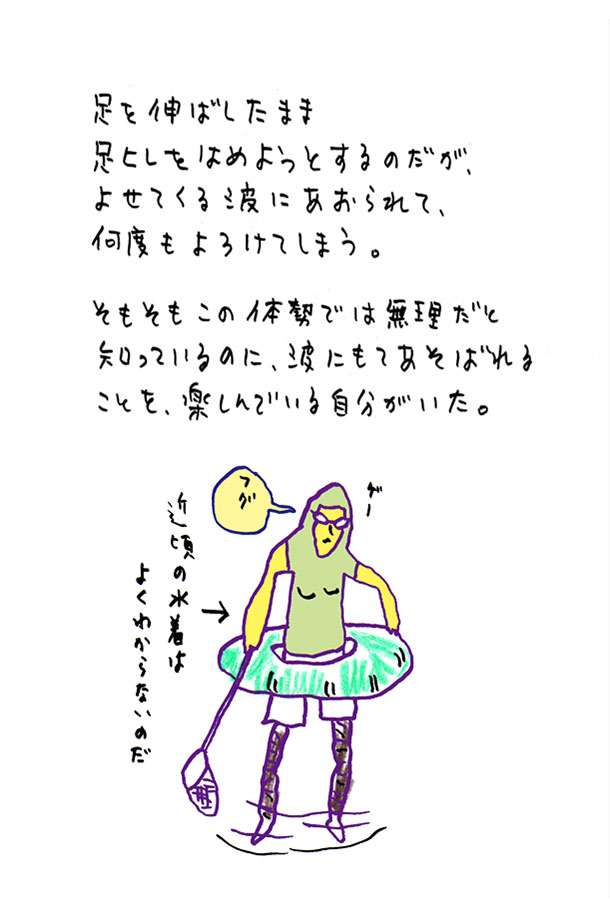 足を伸ばしたまま
足ヒレをはめようっとするのだが、
よせてくる波にあおられて、
何度もよろけてしまう。
そもそもこの体勢では無理だと
知っているのに、波にもてあそばれる
ことを、楽しんでいる自分がいた。
フグ
グー
近頃の水着は
よくわからないのだ